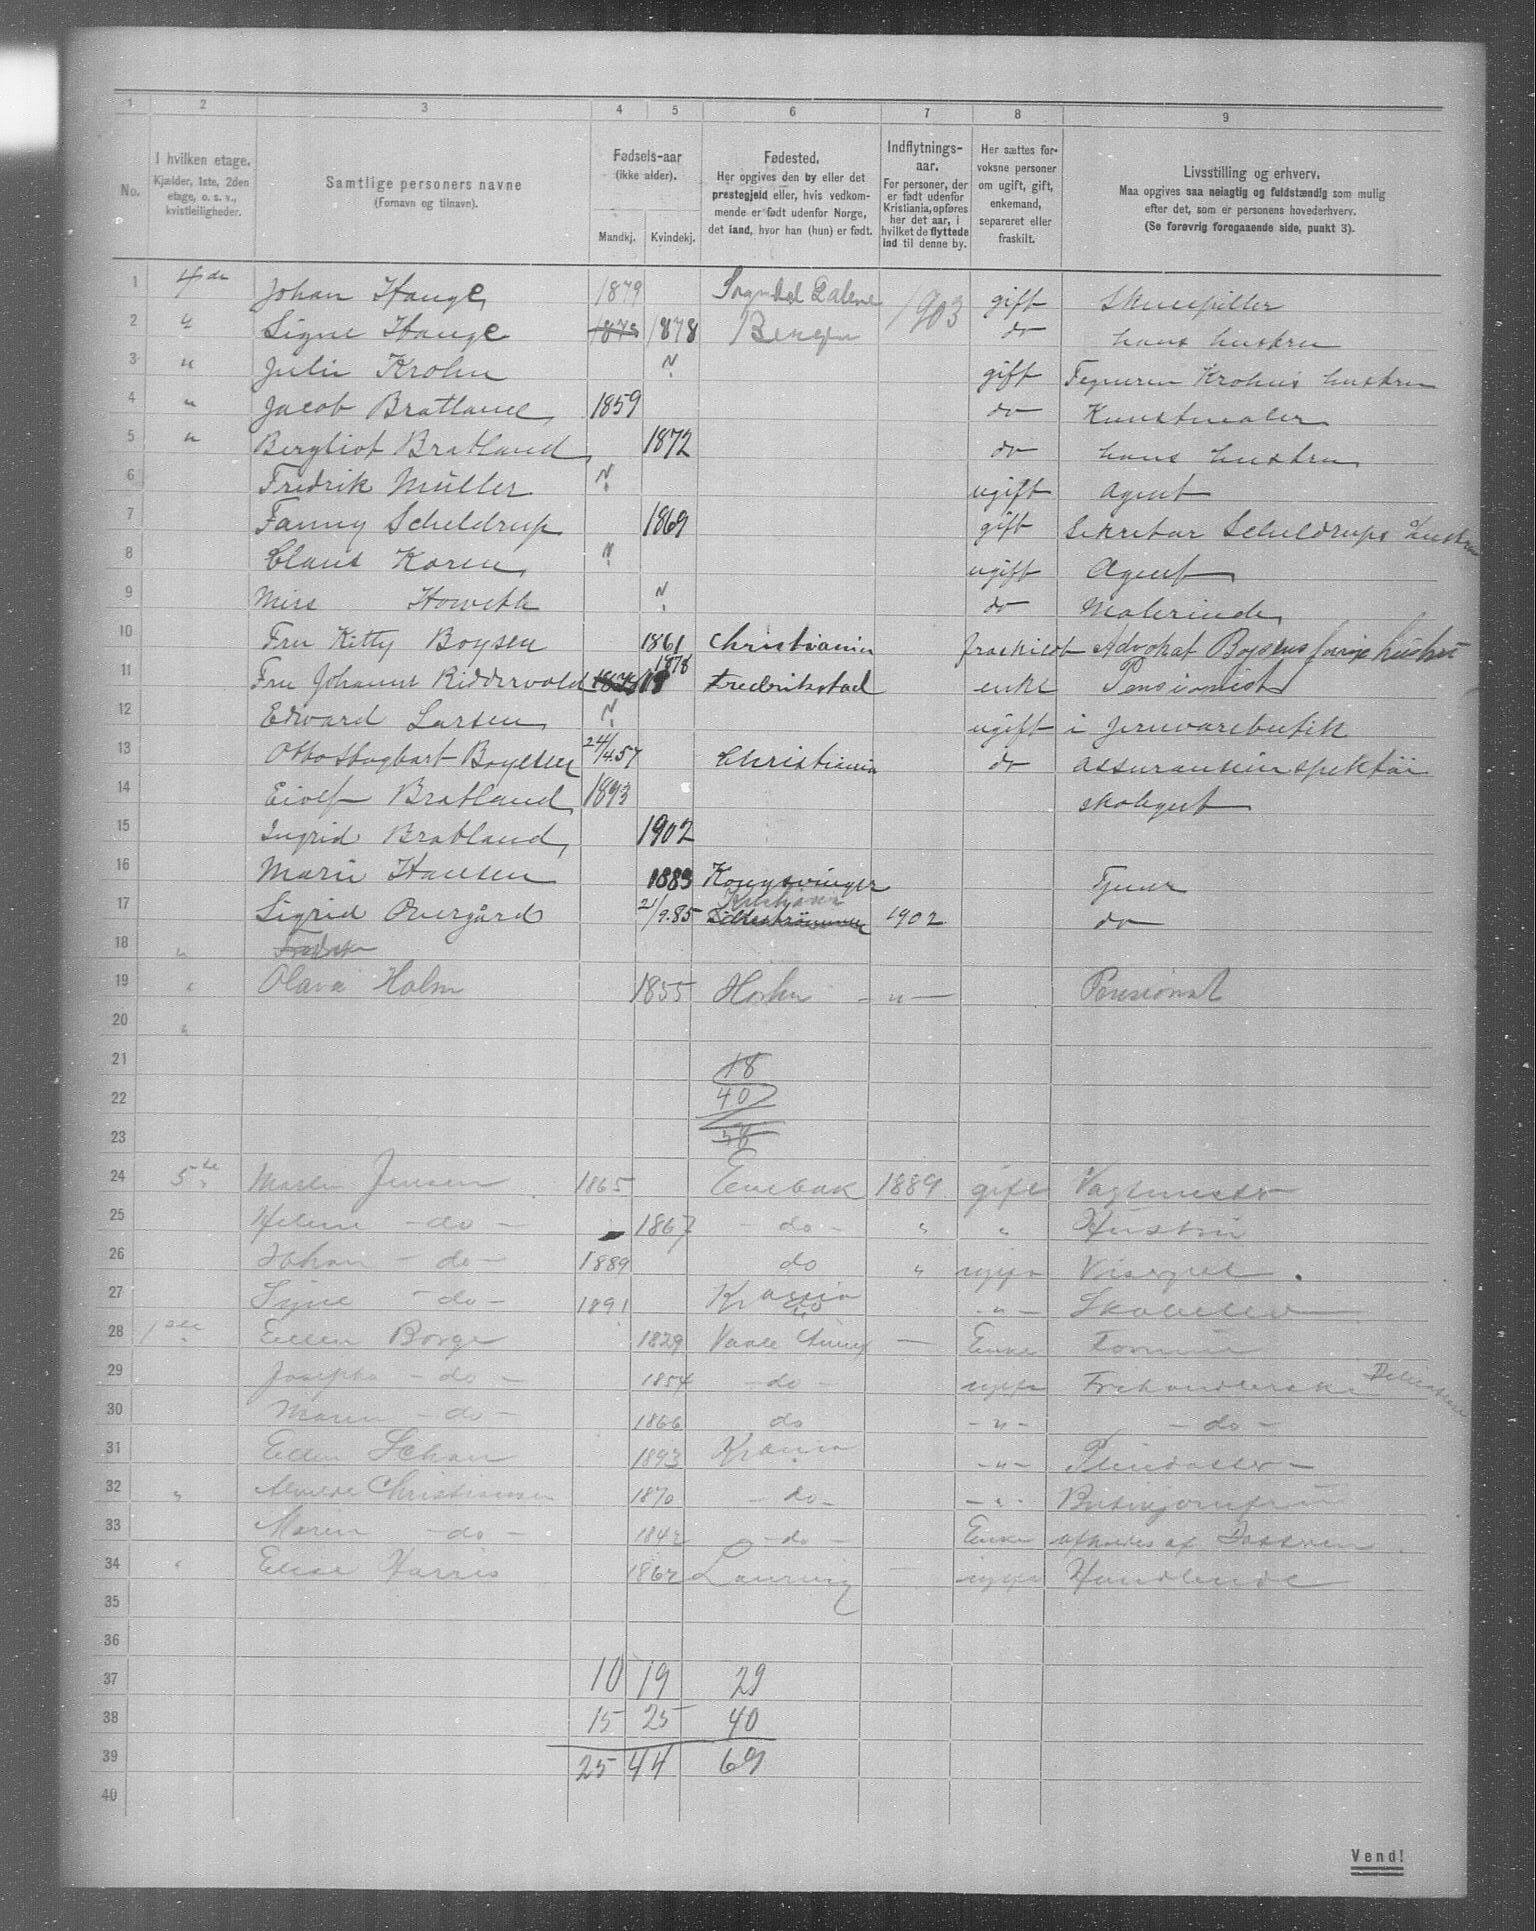 1 2 3 4 5 6 7 8 9
No.
I hvilken etage.
Kjælder, 1ste, 2den
etage, o. s. v.,
kvistleiligheder.
Samtlige personers navne
(Fornavn og tilnavn).
Fødsels-aar
(ikke alder).
Mandkj. Kvindekj.
Fødested.
Her opgives den by eller det
prestegjeld eller, hvis vedkom-
mende er født udenfor Norge,
det land, hvor han (hun) er født.
Indflytnings-
aar.
For personer, der
er født udenfor
Kristiania, opføres
her det aar, i
hvilket de flyttede
ind til denne by.
Her sættes for-
voksne personer
om ugift, gift,
enkemand,
separeret eller
fraskilt.
Livsstilling og erhverv.
Maa opgives saa nøiagtig og fuldstændig som mulig
efter det, som er personens hovederhverv.
(Se forøvrig foregaaende side, punkt 3).
1 4de Johan Hauge 1879 Sogndal Dalene 1903 gift Skuespiller
2 " Signe Hauge 1878 1878 Bergen do hans hustru
3 " Julie Krohn N gift Krohns hustru
4 " Jacob Bratland 1859 do Kunstmaler
5 " Bergliot Bratland 1872 do hans hustru
6 Fredrik Müller N ugift Agent
7 Fanny Scheldrup 1869 gift Sekretær Scheldrups hustru
8 Claus Koren N ugift Agent
9 Miss Howeth N do Malerinde
10 Fru Kitty Boysen 1861 Christiania fraskildt Advokat Boysens forrige hustru
11 Fru Johanne Riddervold 1878 1878 Fredrikstad enke Pensionist
12 Edvard Larsen N ugift i jernvarebutik
13 Otto Hagbart Boyesen 24/4.57 Christiania do assuranceinspektør
14 Eiolf Bratland 1893 skolegut
15 Ingrid Bratland 1902
16 Marie Hansen 1883 Kongsvinger Tjener
17 Sigrid Overgård 21/9.85 Kristiania Lillestrømmen 1902 do
18 "
19 " Olava Holm 1855 - " - Pensionat
20 "
21 18
22 40
23 58
24 5te Martin Jensen 1865 Enebak 1889 gift Vagtmester
25 Helene - do - 1867 - do - " " Hustru
26 Johan - do - 1889 do " ugift Visergut
27 Signe - do - 1891 Krania - " - Skoleelev
28 1ste Ellen Borge 1829 Vaale - Enke Formue
29 Josepha - do - 1854 - do - ugift Frihandlerske
30 Maren - do - 1866 do - " - - do -
31 Ellen 1893 Krania - " -
32 " Alvilde Christiansen 1870 - do - - " -
33 Maren - do - 1842 - do - Enke af Datteren
34 " Elise Harris 1862 Laurvig ugift Handlende
35
36
37 10 19 29
38 15 25 40
39 25 44 69
40
Vend!